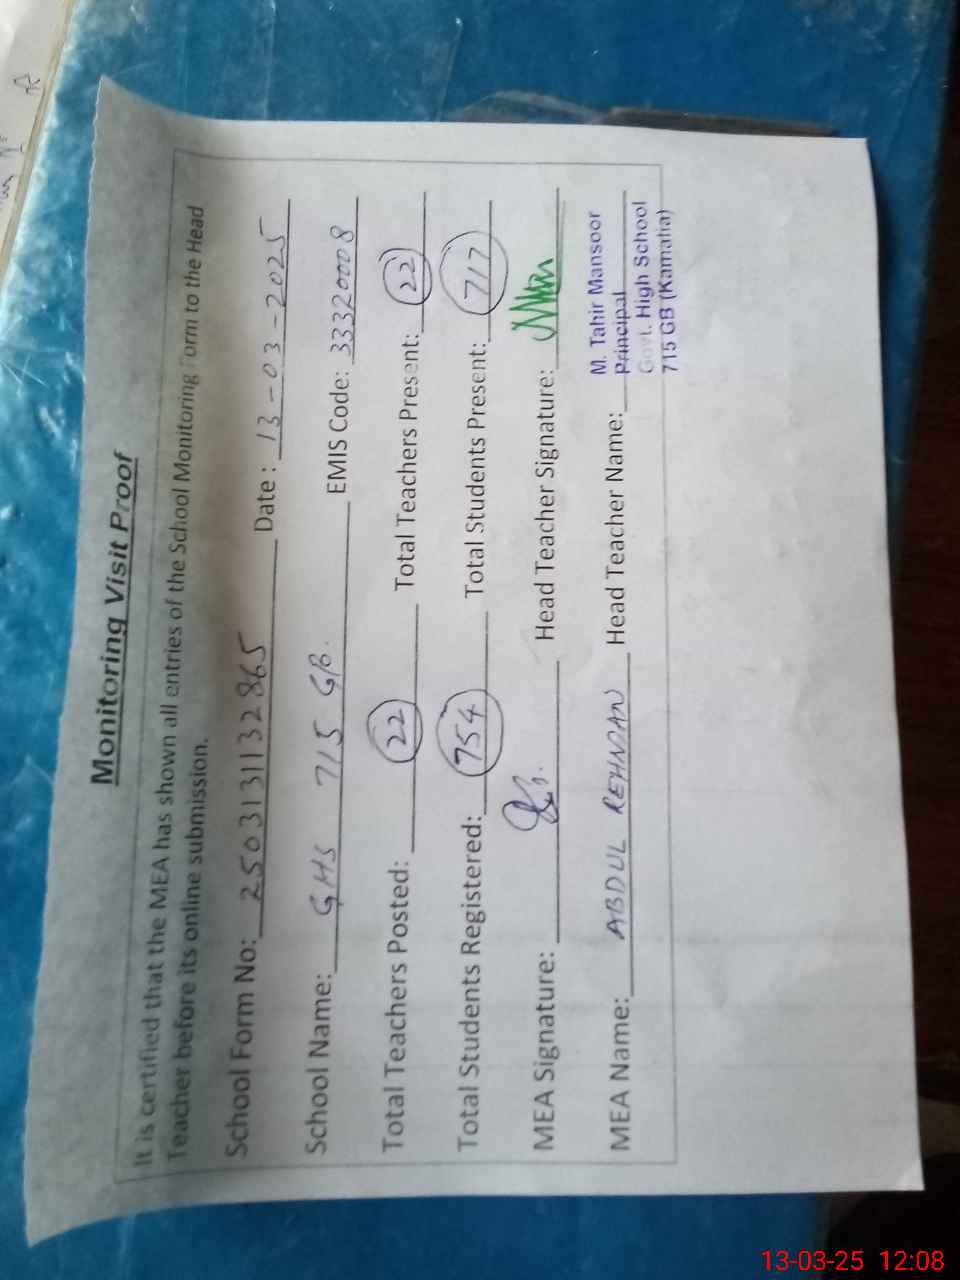 Monitoring Visit Proof
It is certified that the MEA has shown all entries of the School Monitoring Form to the Head
Teacher before its online submission.
School Form No: 2503131132865 Date : 13-03-2025
School Name: GHS 715 GB. EMIS Code: 33320008
Total Teachers Posted: 22 Total Teachers Present: 22
Total Students Registered: 754 Total Students Present: 717
MEA Signature: Head Teacher Signature:
MEA Name: ABDUL REHMAN Head Teacher Name: M. Tahir Mansoor
Principal
Govt. High School
715 GB (Kamalia)
13-03-25 12:08